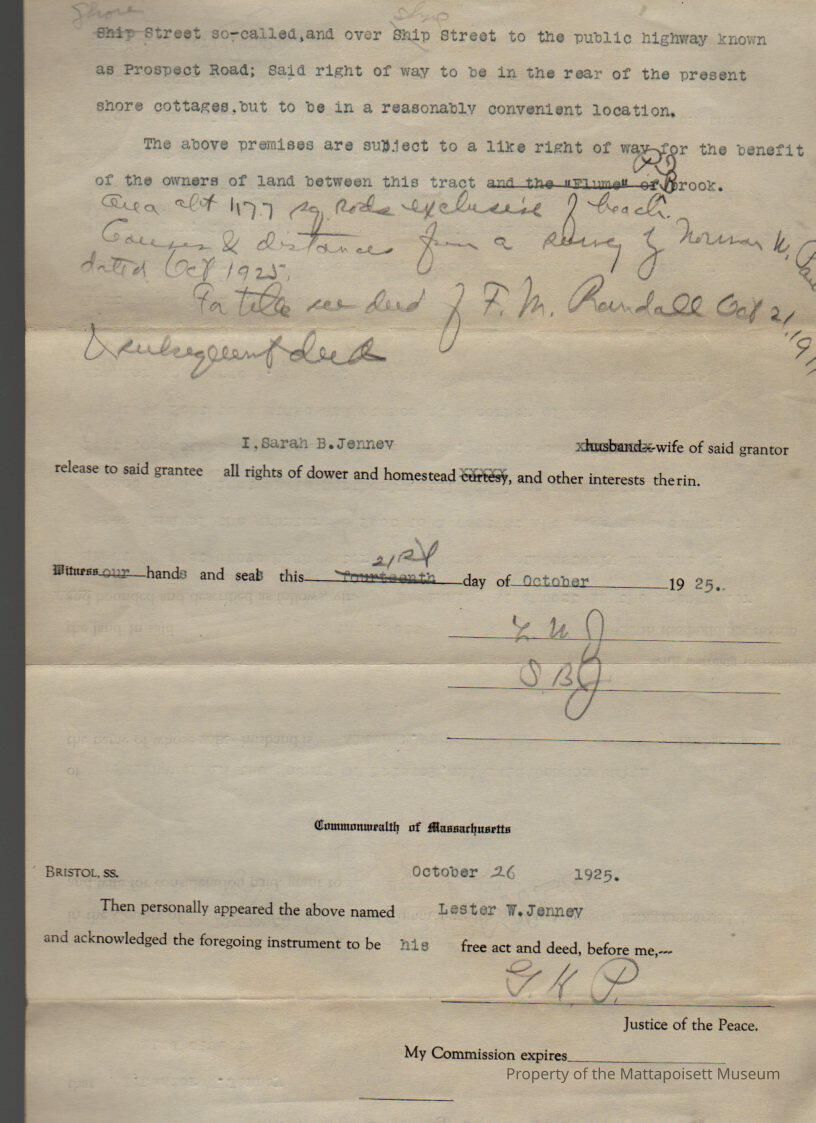 Shore Ship
Ship Street so-called,and over Ship Street to the public highway known
as Prospect Road; Said right of way to be in the rear of the present
shore cottages,but to be in a reasonably convenient location.
The above premises are subject to a like right of way for the benefit
of the owners of land between this tract and the "Flume" or Brook.
Area abt 1177 sq rods exclusive of beach.
Courses & distances from a survey by Norman W.
dated Oct 1925.
For title see deed of F. M. Randall Oct 21, 191
& subsequent deed
I,Sarah B.Jenney xhusbandx wife of said grantor
release to said grantee all rights of dower and homestead xxxxx curtesy, and other interests therin.
21st
Witness our hands and seals this fourteenth day of October 1925.
L W J
S. B J
Commonwealth of Massachusetts
BRISTOL, SS. October 26 1925.
Then personally appeared the above named Lester W.Jenney
and acknowledged the foregoing instrument to be his free act and deed, before me,---
G. K. P.
Justice of the Peace.
My Commission expires
Property of the Mattapoisett Museum